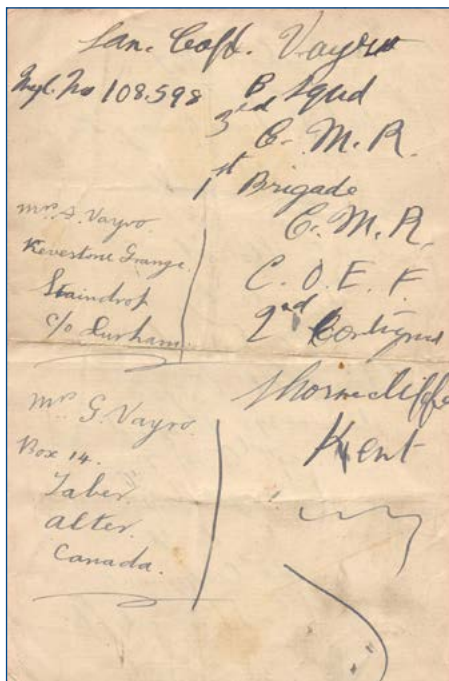 Lan. Copl. Vayro
Regl. No 108.598
B Squd
3rd C. M. R.
1st Brigade
C. M. R.
C. O. E. F.
2nd Contignt
Shorncliffe
Kent
Mrs. S. Vayro.
Keverstone Grange.
Staindrop
c/o Durham.
Mrs G. Vayro.
Box 14.
Taber.
Alter.
Canada.